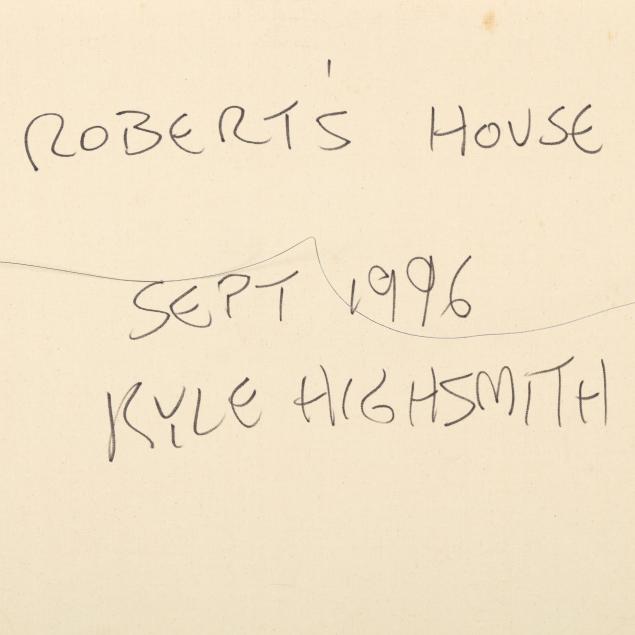 ROBERT'S HOUSE
SEPT 1996
KYLE HIGHSMITH